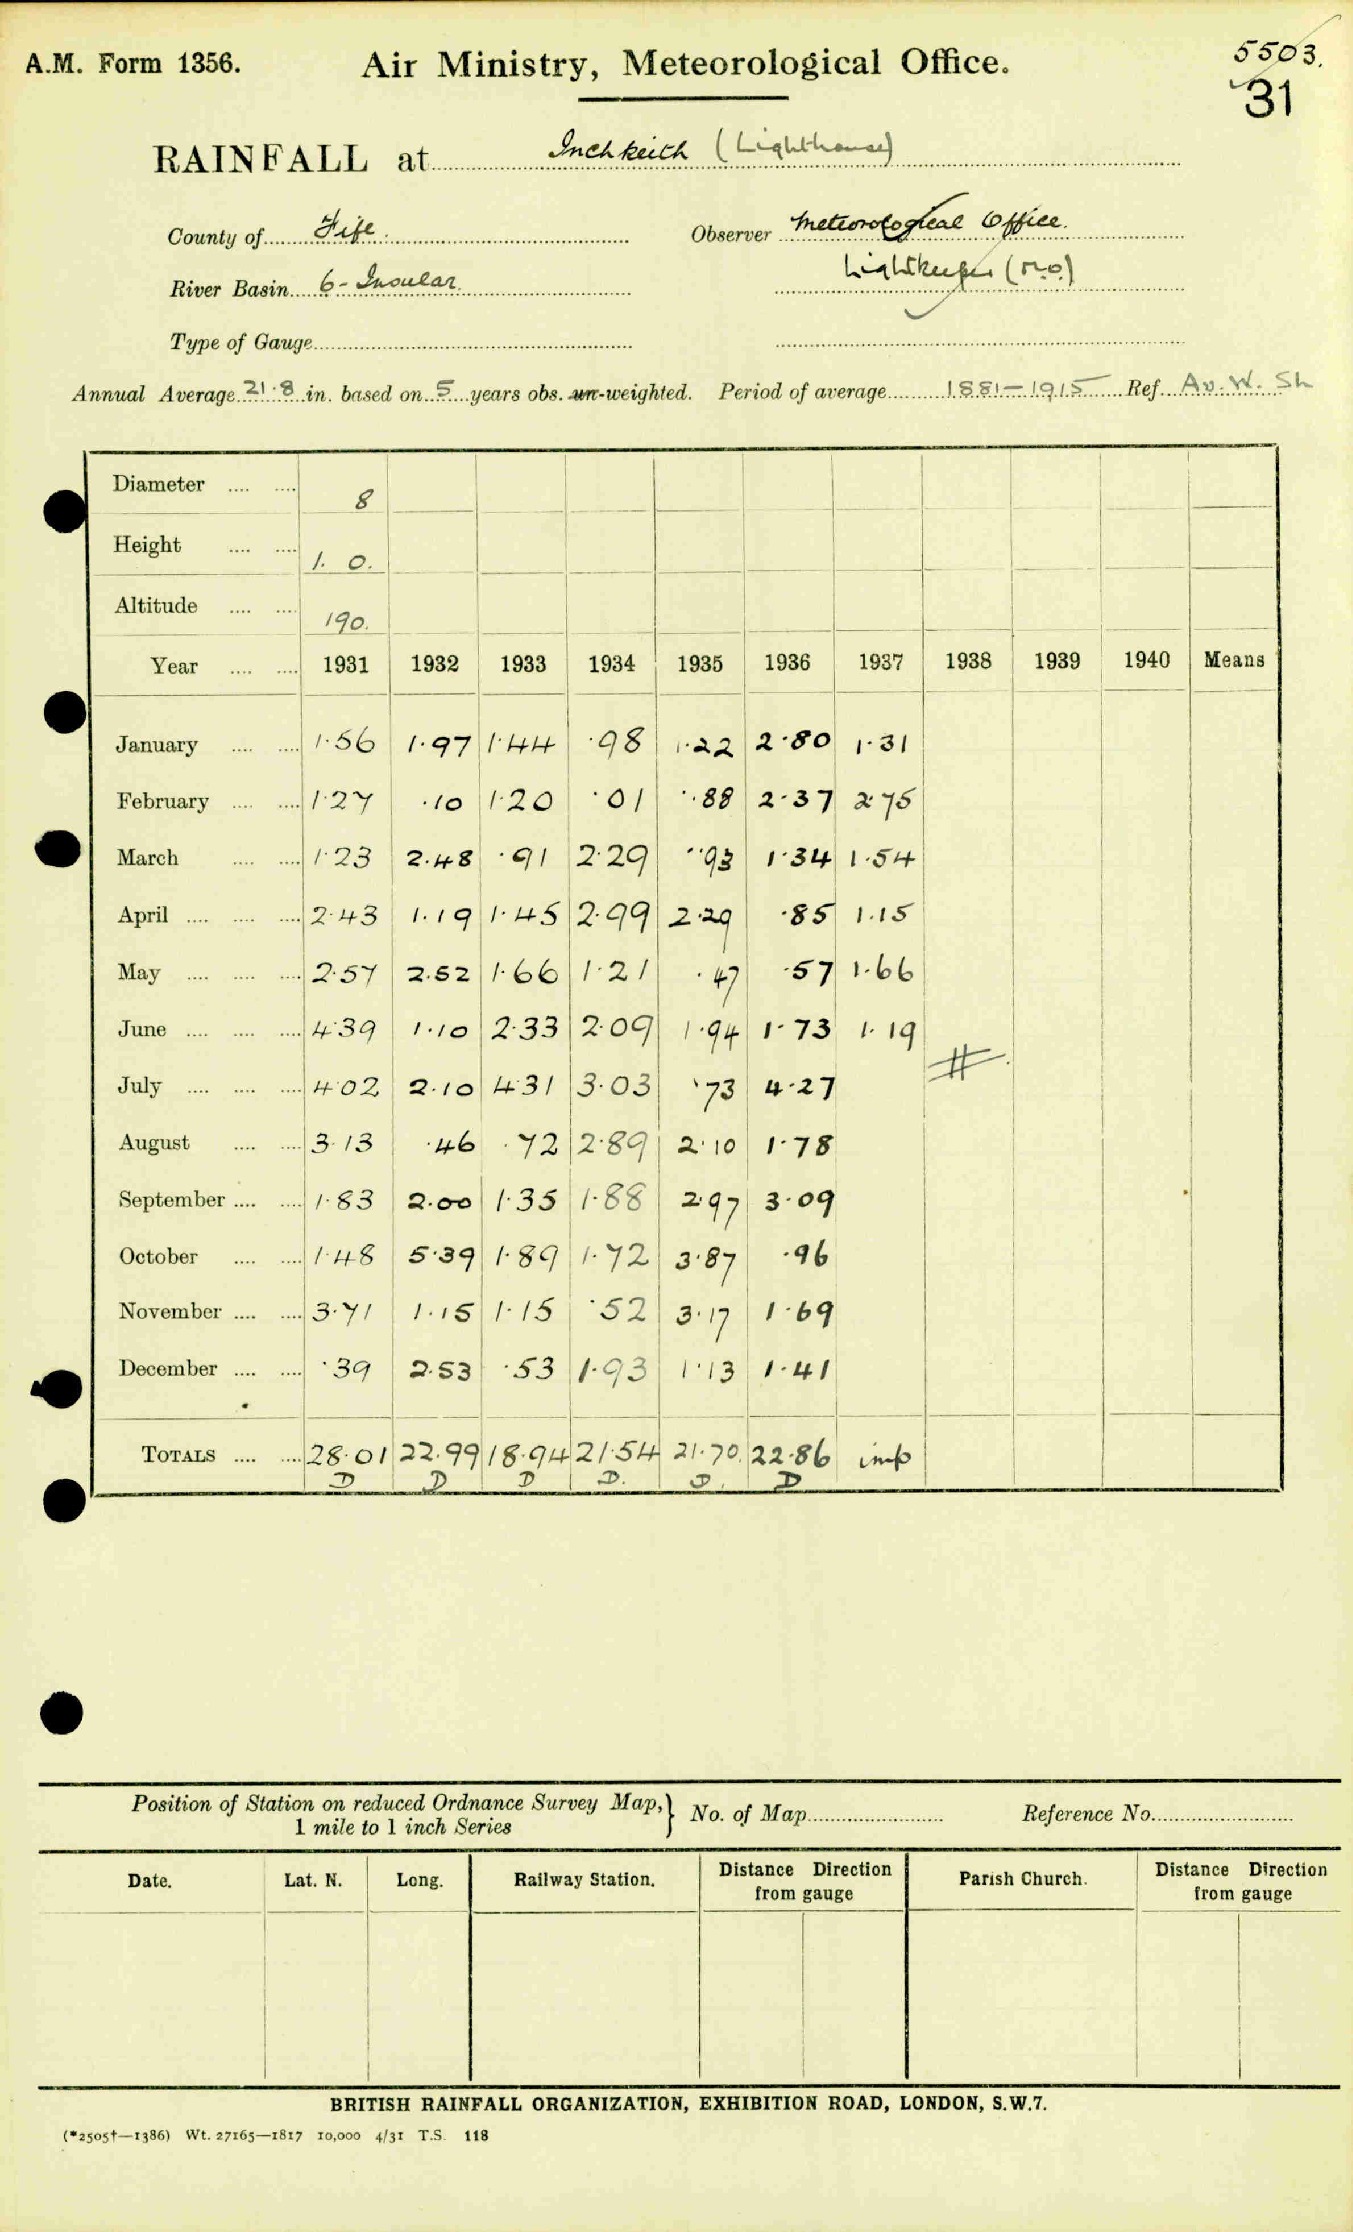 A.M. Form 1356.
Air Ministry, Meteorological Office.
5503.
31
RAINFALL at Inchkeith (Lighthouse)
County of Fife.
Observer Meteorological Office.
River Basin 6 - Insular.
Lightkeeper (M.O.)
Type of Gauge
Annual Average 21.8 in. based on 5 years obs. un-weighted. Period of average 1881-1915 Ref. Av. W. Sh
Diameter .... .... 8
Height .... .... 1. 0.
Altitude .... .... 190.
Year .... .... 1931 1932 1933 1934 1935 1936 1937 1938 1939 1940 Means
January .... .... 1.56 1.97 1.44 .98 1.22 2.80 1.31
February .... .... 1.27 .10 1.20 .01 .88 2.37 2.75
March .... .... 1.23 2.48 .91 2.29 .93 1.34 1.54
April .... .... .... 2.43 1.19 1.45 2.99 2.29 .85 1.15
May .... .... .... 2.57 2.52 1.66 1.21 .47 .57 1.66
June .... .... .... 4.39 1.10 2.33 2.09 1.94 1.73 1.19
July .... .... .... 4.02 2.10 4.31 3.03 .73 4.27
August .... .... 3.13 .46 .72 2.89 2.10 1.78
September .... .... 1.83 2.00 1.35 1.88 2.97 3.09
October .... .... 1.48 5.39 1.89 1.72 3.87 .96
November .... .... 3.71 1.15 1.15 .52 3.17 1.69
December .... .... .39 2.53 .53 1.93 1.13 1.41
TOTALS .... .... 28.01 22.99 18.94 21.54 21.70 22.86 imp
D D D D. D. D
Position of Station on reduced Ordnance Survey Map,} No. of Map Reference No.
1 mile to 1 inch Series
Date. Lat. N. Long. Railway Station. Distance Direction Parish Church. Distance Direction
from gauge from gauge
BRITISH RAINFALL ORGANIZATION, EXHIBITION ROAD, LONDON, S.W.7.
(*2505†—1386) Wt. 27165—1817 10,000 4/31 T.S. 118